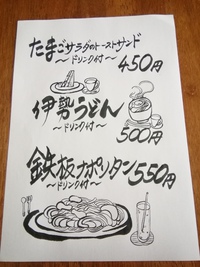 たまごサラダのトーストサンド
〜ドリンク付〜 450円
伊勢うどん
〜ドリンク付〜 500円
鉄板ナポリタン 550円
〜ドリンク付〜